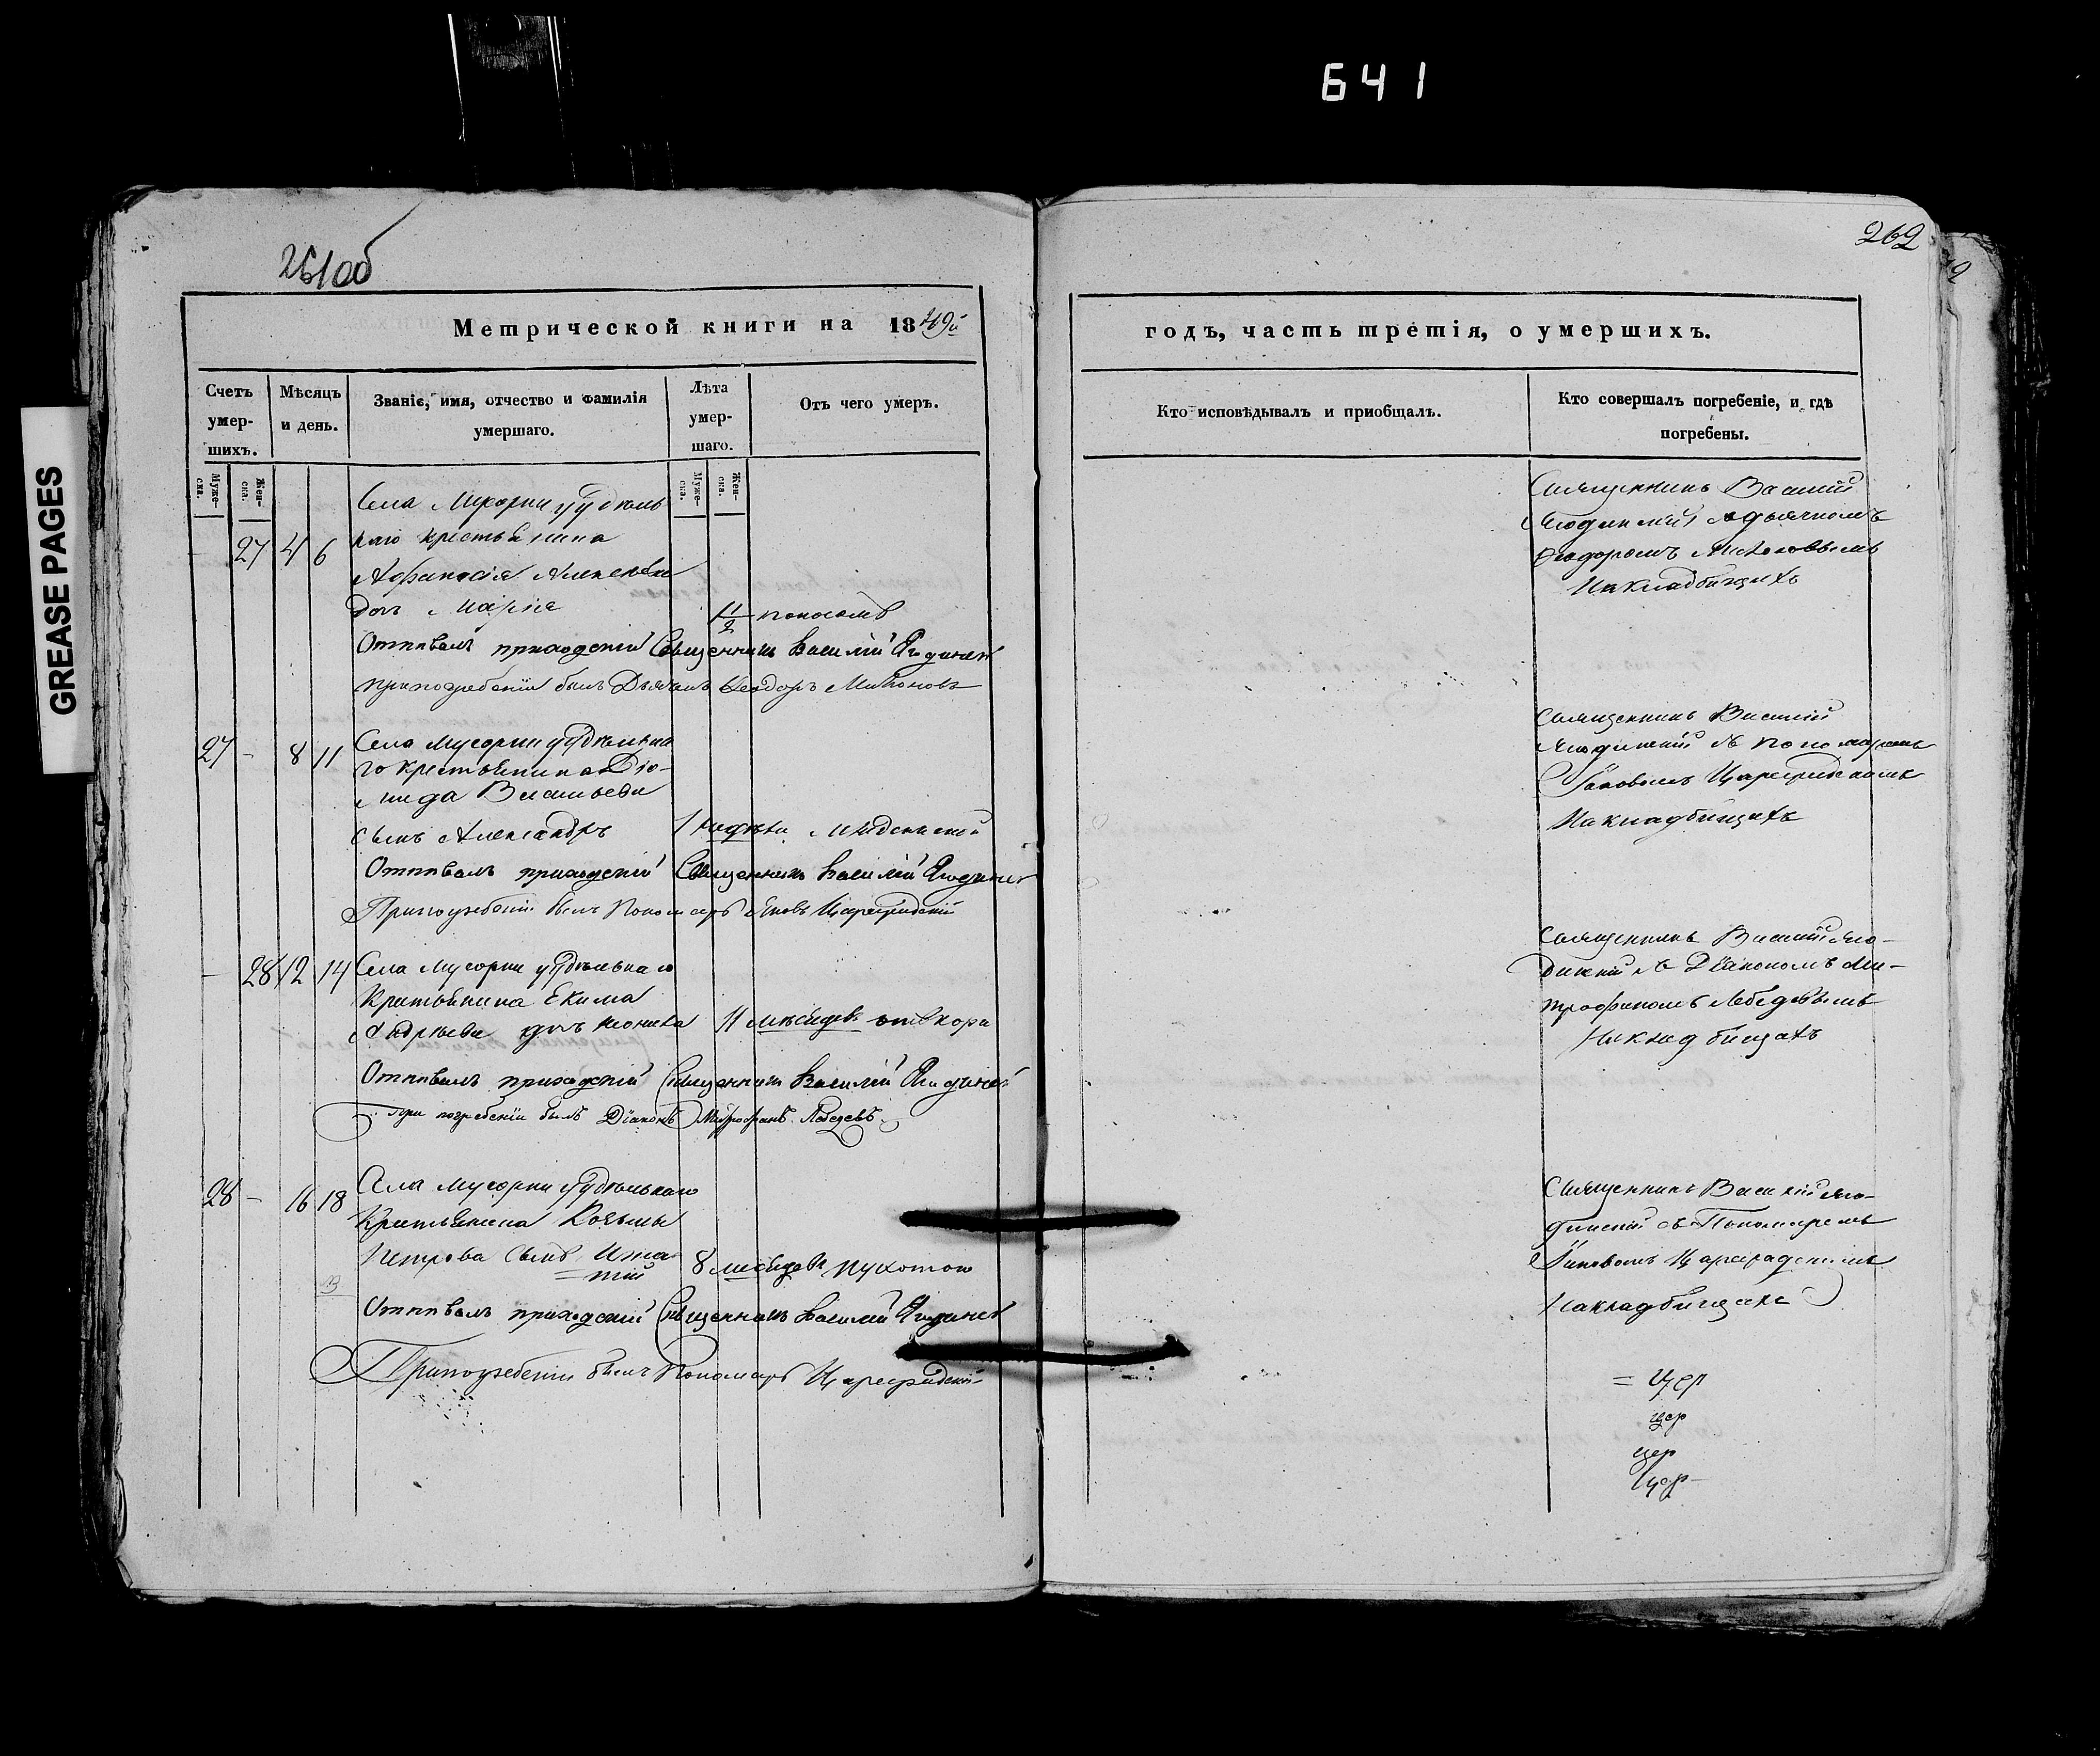 641
GREASE PAGES
261об
Метрической книги на 1849й
Счетъ умер-шихъ.
Мѣсяцъ и день.
Званіе, имя, отчество и фамилія умершаго.
Лѣта умер-шаго.
Отъ чего умеръ.
Муже-ска.
Жен-ска.
Муже-ска.
Жен-ска.
Села Мусорки удѣль
- 27 4 6 наго крестьянина
Афанасія Алексѣева
дочь Марія 1 1/2 поносомъ
Отпѣвалъ приходскій Священникъ Василій Ягодинскій
при погребеніи былъ Дьячекъ Ѳеодоръ
27 - 8 11 Села Мусорки удѣльна
го крестьянина Дiо-
мида Васильева
сынъ Александръ 1 недѣли младенческой
Отпѣвалъ приходскій Священникъ Василій Ягодинскій
При погребеніи былъ Пономарь Яковъ Цареградскій
- 28 12 14 Села Мусорки удѣльнаго
Крестьянина Екима
Андрѣева дочь 11 мѣсяцевъ отъ кори
Отпѣвалъ приходскій Священникъ Василій Ягодинскій
При погребеніи былъ Діаконъ Митрофанъ Лебедевъ
28 - 16 18 Села Мусорки удѣльнаго
Крестьянина Козьмы
Петрова сынъ Игна
=тій 8 мѣсяцевъ сухотою
Отпѣвалъ приходскій Священникъ Василій Ягодинскій
При погребеніи былъ Пономарь Цареградскій
262
годъ, часть третія, о умершихъ.
Кто исповѣдывалъ и приобщалъ.
Кто совершалъ погребеніе, и гдѣ погребены.
Священникъ Василій
Ягодинскій съ дьячкомъ
Ѳеодоромъ
На кладбищахъ
Священникъ Василій
Ягодинскій съ пономаремъ
Яковомъ Цареградскимъ
На кладбищахъ
Священникъ Василій Яго-
динскій съ Діакономъ Ми-
трофаномъ Лебедевымъ
На кладбищахъ
Священникъ Василій Яго-
динскій съ Пономаремъ
Яковомъ Цареградскимъ
На кладбищахъ
= Цер
цер
цер
Цер